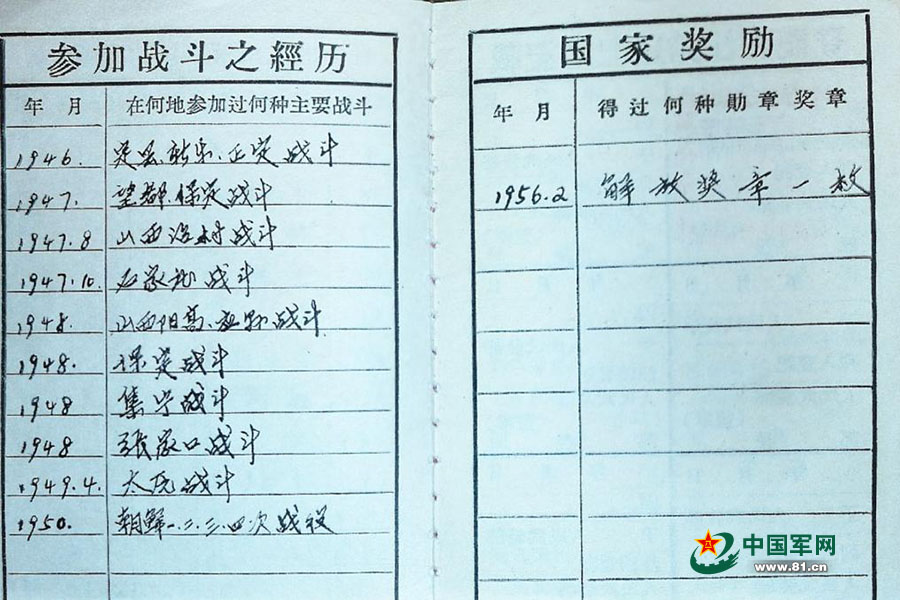 参加战斗之經历
年 月 在何地参加过何种主要战斗
1946. 定县.新乐.正定战斗
1947. 望都.保定战斗
1947.8 山西 村战斗
1947.10. 石家庄战斗
1948. 山西阳高.应县战斗
1948. 保定战斗
1948 集宁战斗
1948 张家口战斗
1949.4. 太原战斗
1950. 朝鲜一.二.三.四次战役
国家奖励
年 月 得过何种勛章奖章
1956.2 解放奖章一枚
中国军网
www.81.cn